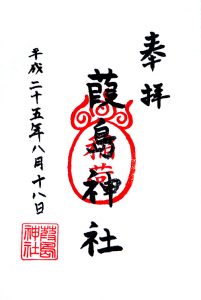 奉拝
葭島神社
稲荷
平成二十五年八月十八日
葭島
神社